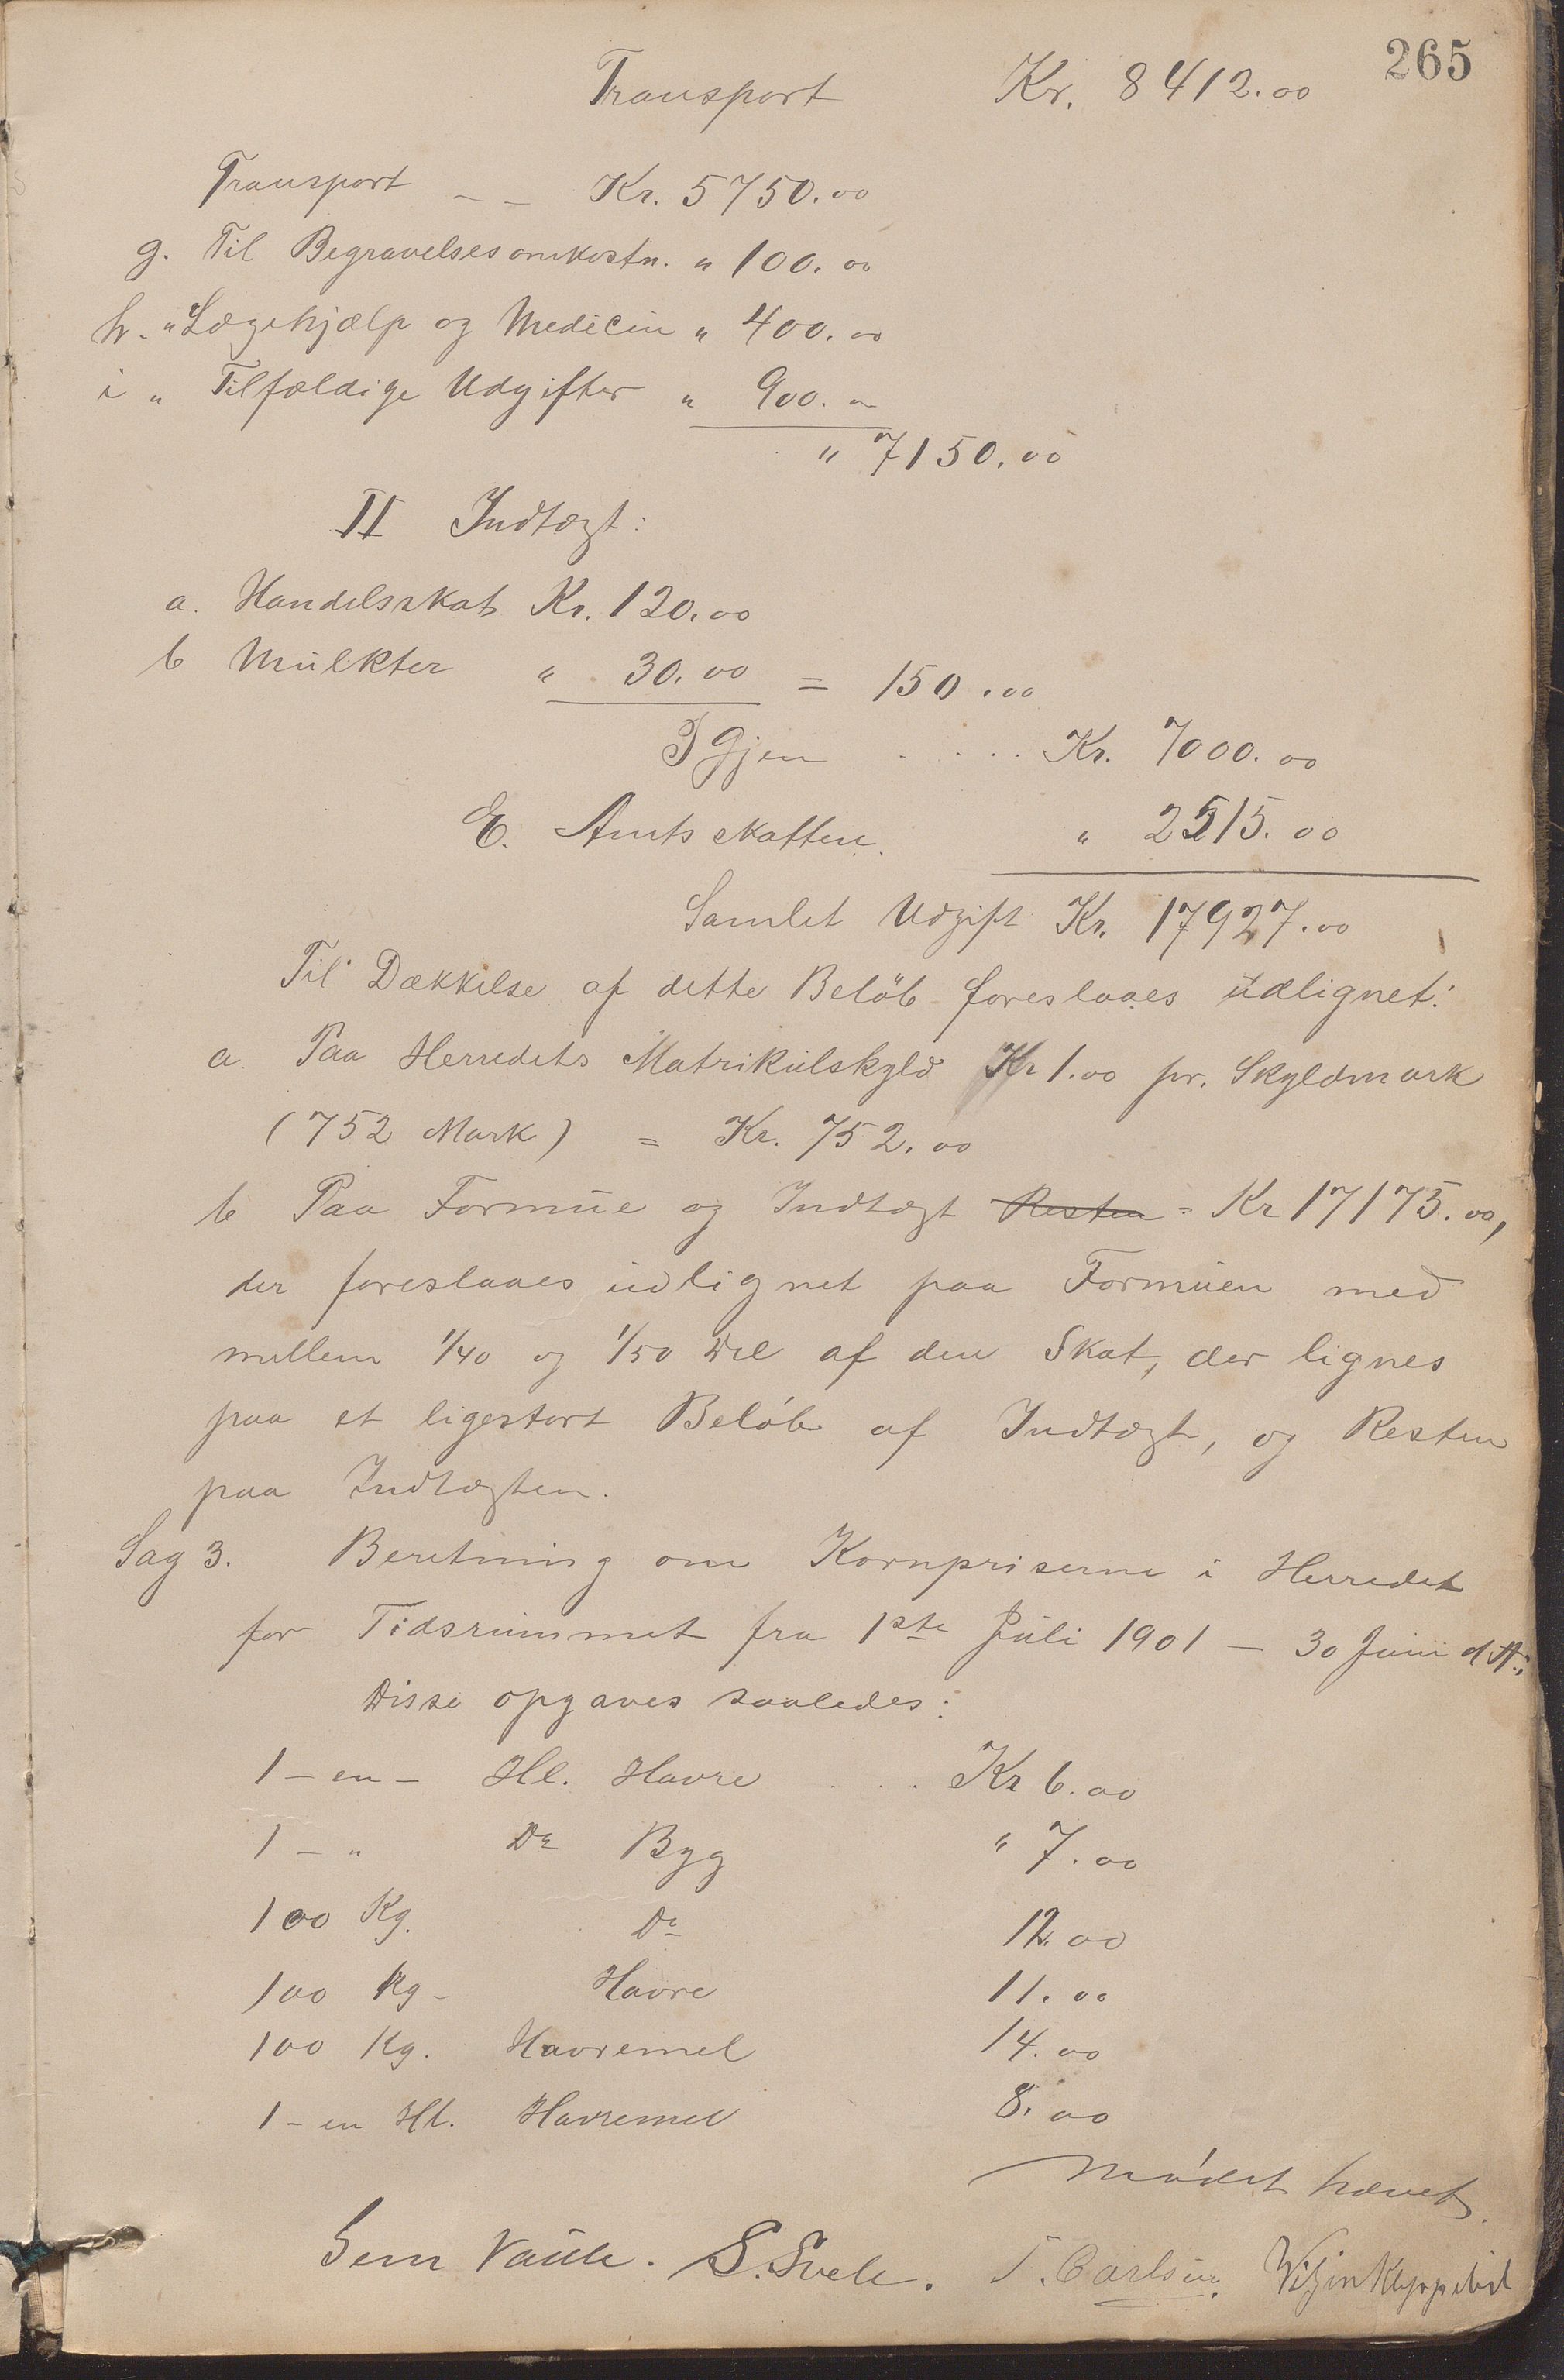 265
Transport Kr. 8412.00
Transport - - Kr. 5750.00
g. Til Begravelsesomkostn. " 100.00
h. " Lægehjælp og Medicin " 400.00
i " Tilfældige Udgifter " 900.00
" 7150.00
II Indtægt:
a. Handelsskat Kr. 120.00
b Mulkter " 30.00 = 150.00
Igjen . . . . Kr. 7000.00
E. Amtsskatten. " 2515.00
Samlet Udgift Kr. 17927.00
Til Dækkelse af dette Beløb foreslaaes udlignet:
a. Paa Herredets Matrikulskyld Kr 1.00 pr. Skyldmark
(752 Mark) = Kr. 752.00
b Paa Formue og Indtægt Resten = Kr 17175.00,
der foreslaaes udlignet paa Formuen med
mellem 1/40 og 1/50 Del af den Skat, der lignes
paa et ligestort Beløb af Indtægt, og Resten
paa Indtægten.
Sag 3. Beretning om Kornpriserne i Herredet
for Tidsrummet fra 1ste Juli 1901 — 30 Juni d. A.;
Disse opgaves saaledes:
1 - en - Hl. Havre . . . Kr 6.00
1 - " Do Byg " 7.00
100 Kg. Do 12.00
100 Kg - Havre 11.00
100 Kg. Havremel 14.00
1 - en Hl. Havremel 8.00
Mødet hævet.
S. Svele. T. Carlsen.